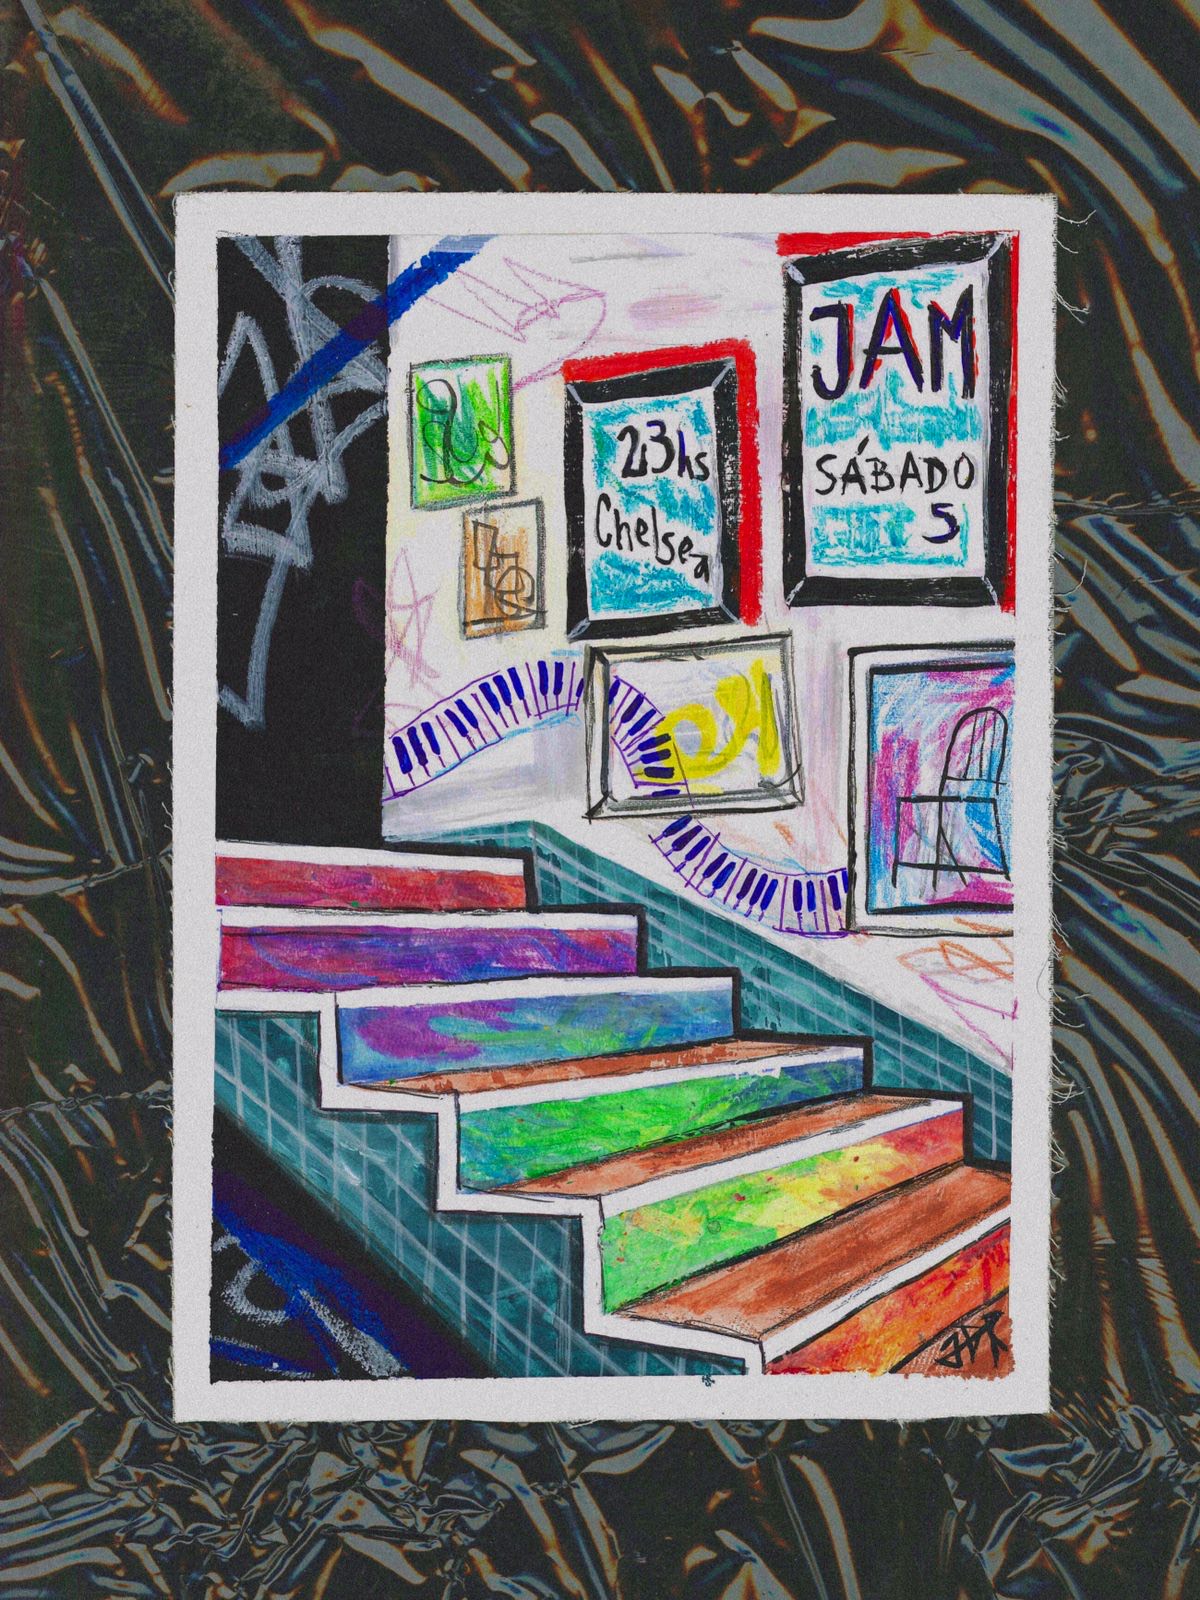 JAM
SÁBADO
5
23hs
Chelsea